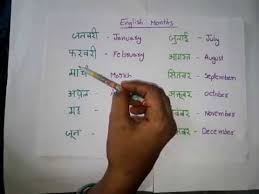 English Months
जनवरी - January
फरवरी - February
मार्च - March
अप्रैल -
मई -
जून -
जुलाई - July
अगस्त - August
सितंबर - September
अक्टूबर - October
नवंबर - November
दिसंबर - December